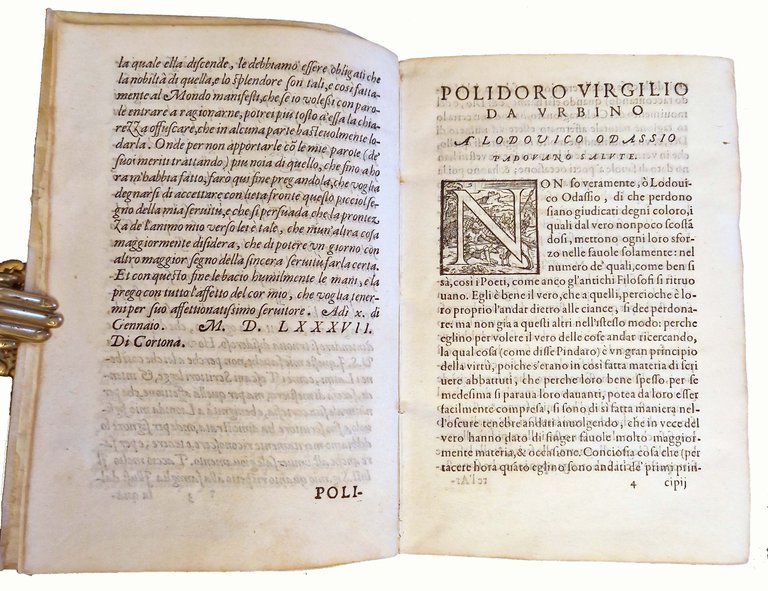 la quale ella discende, le debbiamo essere obligati che
la nobiltà di quella, e lo splendore son tali, e cosi fatta-
mente al Mondo manifesti, che se io volessi con paro-
le entrare a ragionarne, potrei piu tosto d'essa la chia-
rezza offuscare, che in alcuna parte basteuolmente lo-
darla. Onde per non apportarle cō le mie parole (de'
suoi meriti trattando) piu noia di quello, che fino a ho-
ra m'habbia fatto, faro qui fine pregandola, che voglia
degnarsi di accettare con lieta fronte questo picciol se-
gno della mia seruitù, e che si persuada che la prontez-
za de l'animo mio verso lei è tale, che niun'altra cosa
maggiormente disidera, che di potere vn giorno con
altro maggior segno della sincera seruitù farla certa.
Et con questo fine le bacio humilmente le mani, e la
prego con tutto l'affetto del cor mio, che voglia tener-
mi per suo affettionatissimo seruitore. Adi x. di
Gennaio. M. D. LXXXVII.
Di Cortona.
POLI-
POLIDORO VIRGILIO
DA VRBINO
A LODOUICO ODASSIO
PADOVANO SALVTE.
NON so veramente, ò Lodoui-
co Odassio, di che perdono
siano giudicati degni coloro, i
quali dal vero non poco scosta
dosi, mettono ogni loro sfor-
zo nelle fauole solamente: nel
numero de' quali, come ben si
sà, cosi i Poeti, come anco gl'antichi Filosofi si ritruo
uano. Egli è bene il vero, che a quelli, percioche è lo-
ro proprio l'andar dietro alle ciance, si dee perdona-
re: ma non gia a questi altri nell'istesso modo: perche
eglino per volere il vero delle cose andar ricercando,
la qual cosa (come disse Pindaro) è vn gran principio
della virtù, poiche s'erano in cosi fatta materia di scri
uere abbattuti, che perche loro bene spesso per se
medesima si paraua loro dauanti, potea loro esser
facilmente compresa, si sono di sì fatta maniera nel-
l'oscure tenebre andati inuolgendo, che in vece del
vero hanno dato di finger fauole molto maggior-
mente materia, & occasione. Conciosia cosa che (per
tacere hora quāto eglino sono andati de' primi prin-
4 cipij